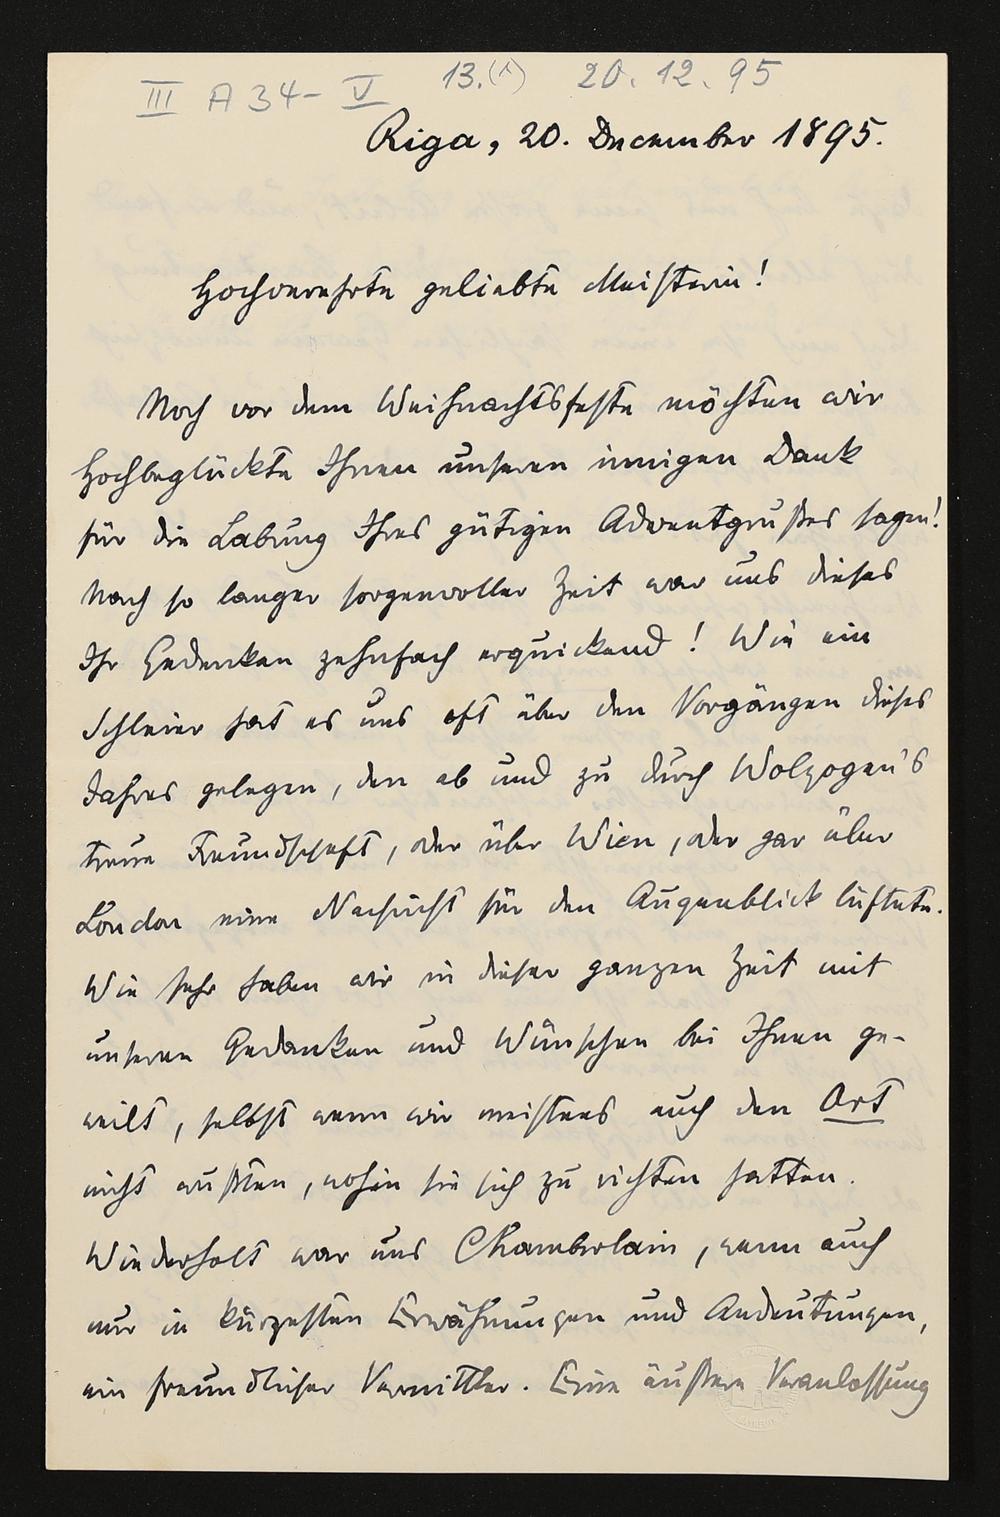 III A 34 - V 13.(1) 20.12.95
Riga, 20. December 1895.
Hochverehrte geliebte Meisterin!
Noch vor dem Weihnachtsfeste möchten wir
Hochbeglückte Ihnen unseren innigen Dank
für die Labung Ihres gütigen Adventgrußes sagen!
Nach so langer sorgenvoller Zeit war uns dieses
Ihr Gedenken zehnfach erquickend! Wie ein
Schleier hat es uns oft über den Vorgängen dieses
Jahres gelegen, den ab und zu durch Wolzogen's
treue Freundschaft, oder über Wien, oder gar über
London eine Nachricht für den Augenblick lüftete.
Wie sehr haben wir in dieser ganzen Zeit mit
unseren Gedanken und Wünschen bei Ihnen ge-
weilt, selbst wenn wir meistens auch den Ort
nicht wußten, wohin sie sich zu richten hatten.
Wiederholt war uns Chamberlain, wenn auch
nur in kürzesten Erwähnungen und Andeutungen,
ein freundlicher Vermittler. Eine äußere Veranlassung